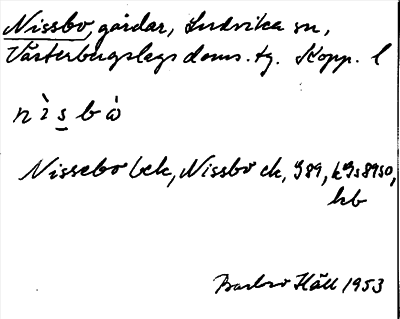 Nissbo, gårdar, Ludvika sn,
Västerbergslags doms. tg. Kopp. l
nìsbò
Nissebo bek, Nissbo ek, J89, kJs8930,
kb
Barbro Häll 1953